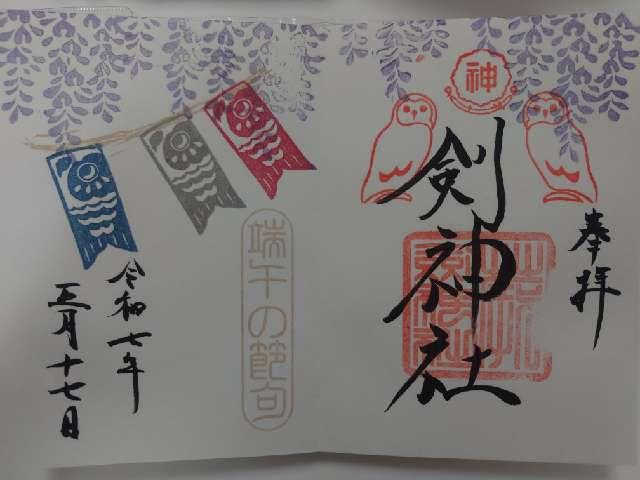 奉拝
神
剣神社
端午の節句
令和七年
五月十七日